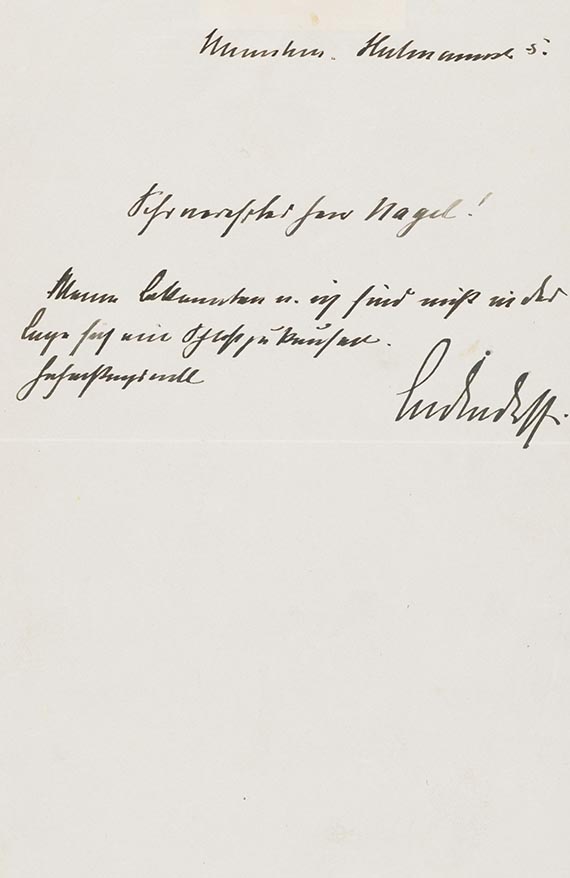 München. Heilmannstr 5.
Sehr verehrter Herr Nagel!
Meine Bekannten u. ich sind nicht in der
Lage sich ein Schloss zu kaufen.
Hochachtungsvoll
Ludendorff.